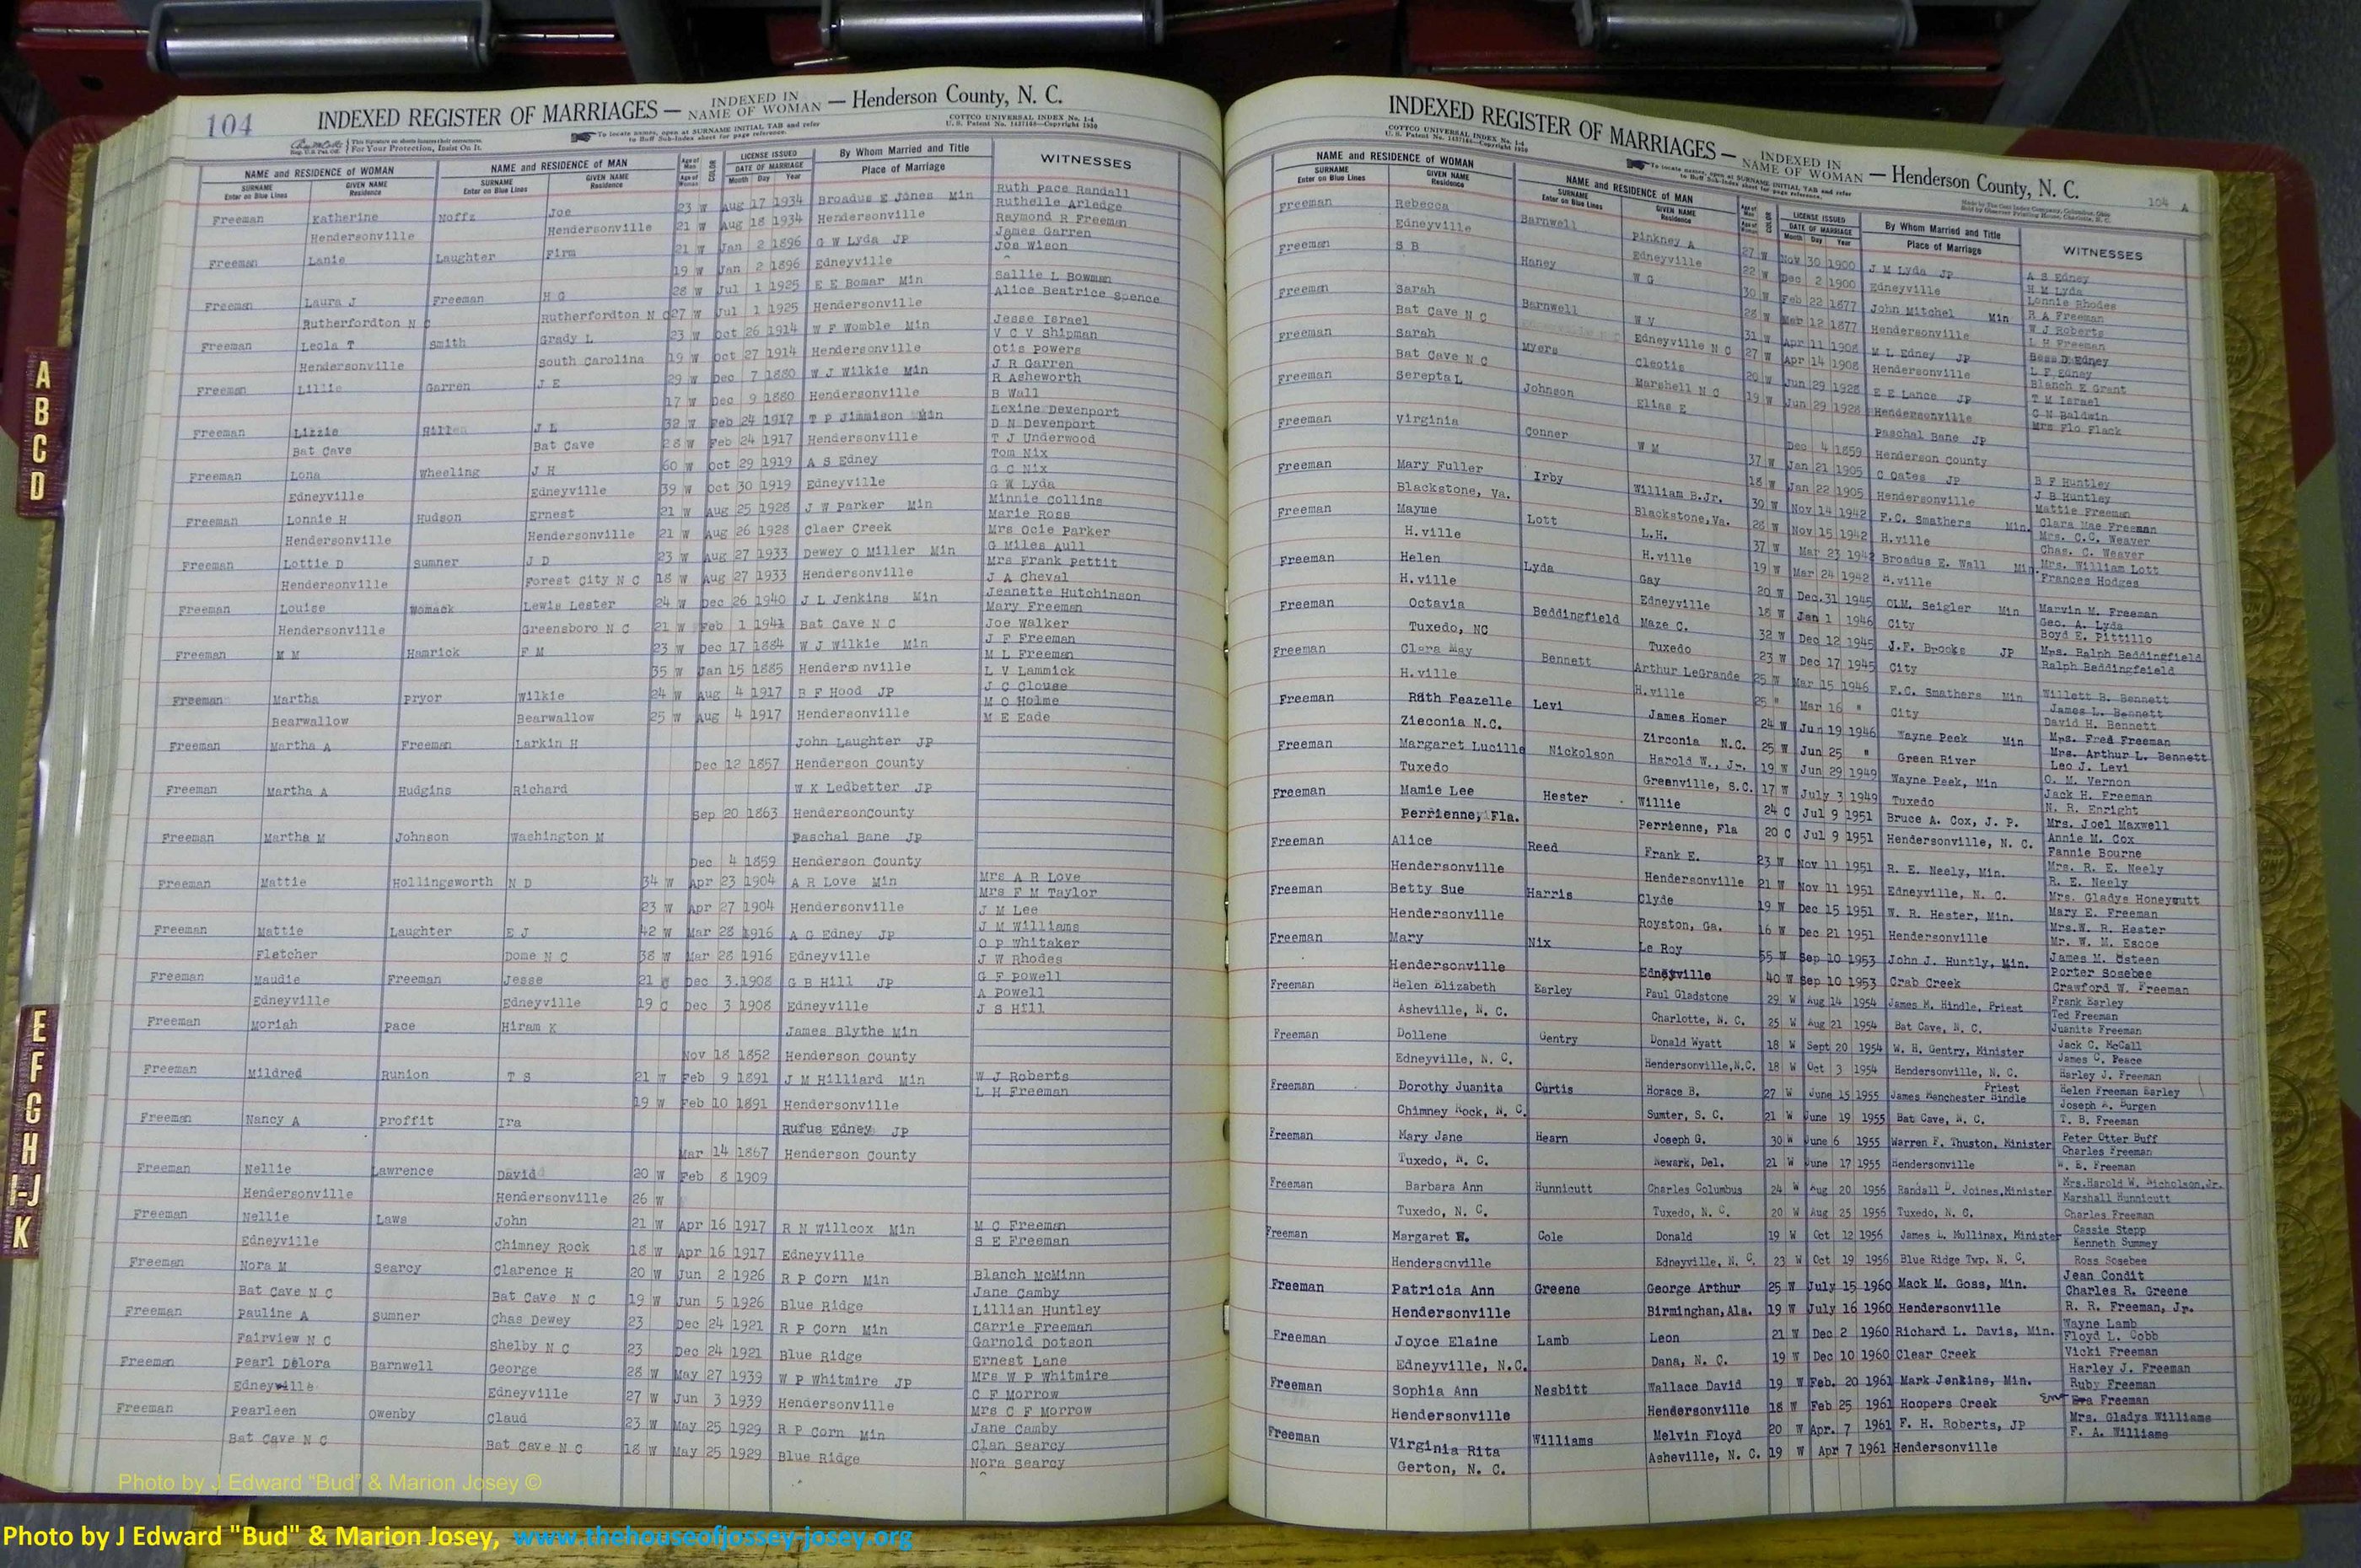 104
INDEXED REGISTER OF MARRIAGES — INDEXED IN NAME OF WOMAN — Henderson County, N. C.
To locate names, open at SURNAME INITIAL TAB and refer to Buff Sub-Index sheet for page reference.
COTTCO UNIVERSAL INDEX No. 1-4
U. S. Patent No. 1437160—Copyright 1930
For Your Protection, Insist On It.
NAME and RESIDENCE OF WOMAN NAME and RESIDENCE OF MAN Age of Man COLOR LICENSE ISSUED By Whom Married and Title WITNESSES
SURNAME Enter on Blue Lines GIVEN NAME Residence SURNAME Enter on Blue Lines GIVEN NAME Residence Age of Woman DATE OF MARRIAGE Month Day Year Place of Marriage
Freeman Katherine Moffz Joe 23 W Aug 17 1934 Broadus E Jones Min Ruth Pace Randall
Hendersonville Hendersonville 21 W Aug 18 1934 Hendersonville Ruthelle Arledge
Raymond R Freeman
Freeman Lanie Laughter Firm 21 W Jan 2 1896 G W Lyda JP James Garren
19 W Jan 2 1896 Edneyville Joe Wison
Freeman Laura J Freeman H G 28 W Jul 1 1925 E E Bomar Min Sallie L Bowman
Rutherfordton N C Rutherfordton N C 27 W Jul 1 1925 Hendersonville Alice Beatrice Spence
Freeman Leola T Smith Grady L 23 W Oct 26 1914 W F Womble Min Jesse Israel
Hendersonville South Carolina 19 W Oct 27 1914 Hendersonville V C V Shipman
Otis Powers
Freeman Lillie Garren J E 29 W Dec 7 1880 W J Wilkie Min J R Garren
17 W Dec 9 1880 Hendersonville R Asheworth
B Wall
Freeman Lizzie Hill J L 32 W Feb 24 1917 T P Jimmison Min Lexine Devenport
Bat Cave Bat Cave 28 W Feb 24 1917 Hendersonville D N Devenport
T J Underwood
Freeman Lona Wheeling J H 60 W Oct 29 1919 A S Edney Tom Nix
Edneyville Edneyville 39 W Oct 30 1919 Edneyville G C Nix
G W Lyda
Freeman Lonnie H Hudson Ernest 21 W Aug 25 1928 J W Parker Min Minnie Collins
Hendersonville Hendersonville 21 W Aug 26 1928 Claer Creek Marie Ross
Mrs Ocie Parker
Freeman Lottie D Sumner J D 23 W Aug 27 1933 Dewey O Miller Min G Miles Aull
Hendersonville Forest City N C 18 W Aug 27 1933 Hendersonville Mrs Frank Pettit
J A Cheval
Freeman Louise Womack Lewis Lester 24 W Dec 26 1940 J L Jenkins Min Jeanette Hutchinson
Hendersonville Greensboro N C 21 W Feb 1 1941 Bat Cave N C Mary Freeman
Joe Walker
Freeman M M Hamrick F M 23 W Dec 17 1884 W J Wilkie Min J F Freeman
35 W Jan 15 1885 Hendersonville M L Freeman
L V Lammick
Freeman Martha Pryor Wilkie 24 W Aug 4 1917 B F Hood JP J C Clouse
Bearwallow Bearwallow 25 W Aug 4 1917 Hendersonville M O Holme
M E Eade
Freeman Martha A Freeman Larkin H John Laughter JP
Dec 12 1857 Henderson County
Freeman Martha A Hudgins Richard W K Ledbetter JP
Sep 20 1863 HendersonCounty
Freeman Martha M Johnson Washington M Paschal Bane JP
Dec 4 1859 Henderson County
Freeman Mattie Hollingsworth N D 34 W Apr 23 1904 A R Love Min Mrs A R Love
23 W Apr 27 1904 Hendersonville Mrs F M Taylor
J M Lee
Freeman Mattie Laughter E J 42 W Mar 28 1916 A G Edney JP J M Williams
Fletcher Dome N C 38 W Mar 28 1916 Edneyville O P Whitaker
J W Rhodes
Freeman Maudie Freeman Jesse 21 C Dec 3 1908 G B Hill JP G F Powell
Edneyville Edneyville 19 C Dec 3 1908 Edneyville A Powell
J S Hill
Freeman Moriah Pace Hiram K James Blythe Min
Nov 18 1852 Henderson County
Freeman Mildred Runion T S 21 W Feb 9 1891 J M Hilliard Min W J Roberts
19 W Feb 10 1891 Hendersonville L H Freeman
Freeman Nancy A Proffit Ira Rufus Edney JP
Mar 14 1867 Henderson County
Freeman Nellie Lawrence David 20 W Feb 8 1909
Hendersonville Hendersonville 26 W
Freeman Nellie Laws John 21 W Apr 16 1917 R N Willcox Min M C Freeman
Edneyville Chimney Rock 18 W Apr 16 1917 Edneyville S E Freeman
Freeman Nora M Searcy Clarence H 20 W Jun 2 1926 R P Corn Min Blanch McMinn
Bat Cave N C Bat Cave N C 19 W Jun 5 1926 Blue Ridge Jane Camby
Lillian Huntley
Freeman Pauline A Sumner Chas Dewey 23 Dec 24 1921 R P Corn Min Carrie Freeman
Fairview N C Shelby N C 23 Dec 24 1921 Blue Ridge Garnold Dotson
Ernest Lane
Freeman Pearl Delora Barnwell George 28 W May 27 1939 W P Whitmire JP Mrs W P Whitmire
Edneyville Edneyville 27 W Jun 3 1939 Hendersonville C F Morrow
Mrs C F Morrow
Freeman Pearleen Owenby Claud 23 W May 25 1929 R P Corn Min Jane Camby
Bat Cave N C Bat Cave N C 18 W May 25 1929 Blue Ridge Clan Searcy
Nora Searcy
INDEXED REGISTER OF MARRIAGES — INDEXED IN NAME OF WOMAN — Henderson County, N. C.
COTTCO UNIVERSAL INDEX No. 1-4
U. S. Patent No. 1437160—Copyright 1930
To locate names, open at SURNAME INITIAL TAB and refer to Buff Sub-Index sheet for page reference.
104 A
NAME and RESIDENCE OF WOMAN NAME and RESIDENCE OF MAN Age of Man COLOR LICENSE ISSUED By Whom Married and Title WITNESSES
SURNAME Enter on Blue Lines GIVEN NAME Residence SURNAME Enter on Blue Lines GIVEN NAME Residence Age of Woman DATE OF MARRIAGE Month Day Year Place of Marriage
Freeman Rebecca Barnwell Pinkney A 27 W Nov 30 1900 J M Lyda JP A S Edney
Edneyville Edneyville 22 W Dec 2 1900 Edneyville H M Lyda
Lonnie Rhodes
Freeman S B Haney W G 30 W Feb 22 1877 John Mitchel Min R A Freeman
28 W Mar 12 1877 Hendersonville W J Roberts
L H Freeman
Freeman Sarah Barnwell W V 31 W Apr 11 1908 M L Edney JP Bess D Edney
Bat Cave N C Edneyville N C 27 W Apr 14 1908 Hendersonville L F Edney
Blanch E Grant
Freeman Sarah Myers Cleotis 20 W Jun 29 1928 E E Lance JP T M Israel
Bat Cave N C Marshell N C 19 W Jun 29 1928 Hendersonville C N Baldwin
Mrs Flo Flack
Freeman Serepta L Johnson Elias E Paschal Bane JP
Dec 4 1859 Henderson County
Freeman Virginia Conner W M 37 W Jan 21 1905 C Oates JP B F Huntley
18 W Jan 22 1905 Hendersonville J B Huntley
Mattie Freeman
Freeman Mary Fuller Irby William B.Jr. 30 W Nov 14 1942 F.C. Smathers Min. Clara Mae Freeman
Blackstone, Va. Blackstone,Va. 28 W Nov 15 1942 H.ville Mrs. C.C. Weaver
Chas. C. Weaver
Freeman Mayme Lott L.H. 37 W Mar 23 1942 Broadus E. Wall Min. Mrs. William Lott
H.ville H.ville 19 W Mar 24 1942 H.ville Frances Hodges
Freeman Helen Lyda Gay 20 W Dec.31 1945 O.M. Seigler Min Marvin M. Freeman
H.ville Edneyville 18 W Jan 1 1946 City Geo. A. Lyda
Boyd E. Pittillo
Freeman Octavia Beddingfield Maze C. 32 W Dec 12 1945 J.F. Brooks JP Mrs. Ralph Beddingfield
Tuxedo, NC Tuxedo 23 W Dec 17 1945 City Ralph Beddingfeield
Freeman Clara May Bennett Arthur LeGrande 25 W Mar 15 1946 F.C. Smathers Min Willett B. Bennett
H.ville H.ville 25 " Mar 16 " City James L. Bennett
David H. Bennett
Freeman Ruth Feazelle Levi James Homer 24 W Jun 19 1946 Wayne Peek Min Mrs. Fred Freeman
Zieconia N.C. Zirconia N.C. 25 W Jun 25 " Green River Mrs. Arthur L. Bennett
Leo J. Levi
Freeman Margaret Lucille Nickolson Harold W., Jr. 19 W Jun 29 1949 Wayne Peek, Min O. M. Vernon
Tuxedo Greenville, S.C. 17 W July 3 1949 Tuxedo Jack H. Freeman
N. R. Enright
Freeman Mamie Lee Hester Willie 24 C Jul 9 1951 Bruce A. Cox, J. P. Mrs. Joel Maxwell
Perrienne, Fla. Perrienne, Fla 20 C Jul 9 1951 Hendersonville, N. C. Annie M. Cox
Fannie Bourne
Freeman Alice Reed Frank E. 23 W Nov 11 1951 R. E. Neely, Min. Mrs. R. E. Neely
Hendersonville Hendersonville 21 W Nov 11 1951 Edneyville, N. C. R. E. Neely
Mrs. Gladys Honeycutt
Freeman Betty Sue Harris Clyde 19 W Dec 15 1951 W. R. Hester, Min. Mary E. Freeman
Hendersonville Royston, Ga. 16 W Dec 21 1951 Hendersonville Mrs.W. R. Hester
Mr. W. M. Escoe
Freeman Mary Nix Le Roy 55 W Sep 10 1953 John J. Huntly, Min. James M. Osteen
Hendersonville Edneyville 40 W Sep 10 1953 Crab Creek Porter Sosebee
Crawford W. Freeman
Freeman Helen Elizabeth Earley Paul Gladstone 29 W Aug 14 1954 James M. Hindle, Priest Frank Earley
Asheville, N. C. Charlotte, N. C. 25 W Aug 21 1954 Bat Cave, N. C. Ted Freeman
Juanita Freeman
Freeman Dollene Gentry Donald Wyatt 18 W Sept 20 1954 W. H. Gentry, Minister Jack C. McCall
Edneyville, N. C. Hendersonville,N.C. 18 W Oct 3 1954 Hendersonville, N. C. James C. Peace
Harley J. Freeman
Freeman Dorothy Juanita Curtis Horace B. 27 W June 15 1955 James Manchester Hindle Priest Helen Freeman Earley
Chimney Rock, N. C. Sumter, S. C. 21 W June 19 1955 Bat Cave, N. C. Joseph A. Burgen
T. B. Freeman
Freeman Mary Jane Hearn Joseph G. 30 W June 6 1955 Warren F. Thuston, Minister Peter Otter Buff
Tuxedo, N. C. Newark, Del. 21 W June 17 1955 Hendersonville Charles Freeman
W. E. Freeman
Freeman Barbara Ann Hunnicutt Charles Columbus 24 W Aug 20 1956 Randall D. Joines,Minister Mrs.Harold W. Nicholson,Jr.
Tuxedo, N. C. Tuxedo, N. C. 20 W Aug 25 1956 Tuxedo, N. C. Marshall Hunnicutt
Charles Freeman
Freeman Margaret E. Cole Donald 19 W Oct 12 1956 James L. Mullinax, Minister Cassie Stepp
Hendersonville Edneyville, N. C. 23 W Oct 19 1956 Blue Ridge Twp. N. C. Kenneth Summey
Ross Sosebee
Freeman Patricia Ann Greene George Arthur 25 W July 15 1960 Mack M. Goss, Min. Jean Condit
Hendersonville Birmingham,Ala. 19 W July 16 1960 Hendersonville Charles R. Greene
R. R. Freeman, Jr.
Freeman Joyce Elaine Lamb Leon 21 W Dec 2 1960 Richard L. Davis, Min. Wayne Lamb
Edneyville, N.C. Dana, N. C. 19 W Dec 10 1960 Clear Creek Floyd L. Cobb
Vicki Freeman
Freeman Sophia Ann Nesbitt Wallace David 19 W Feb. 20 1961 Mark Jenkins, Min. Harley J. Freeman
Hendersonville Hendersonville 18 W Feb 25 1961 Hoopers Creek Ruby Freeman
Era Freeman
Freeman Virginia Rita Williams Melvin Floyd 20 W Apr. 7 1961 F. H. Roberts, JP Mrs. Gladys Williams
Gerton, N. C. Asheville, N. C. 19 W Apr 7 1961 Hendersonville F. A. Williams
A
B
C
D
E
F
G
H
I-J
K
Photo by J Edward "Bud" & Marion Josey ©
Photo by J Edward "Bud" & Marion Josey, www.thehouseofjossey-josey.org